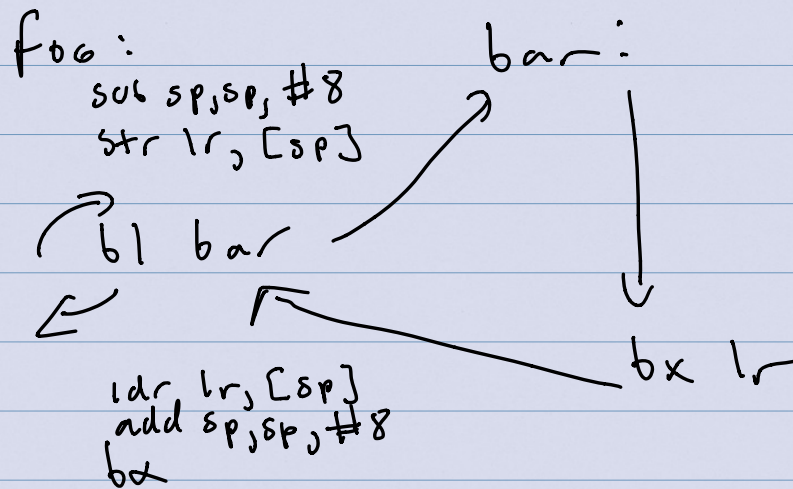 foo:
sub sp, sp, #8
str lr, [sp]
bl bar
ldr lr, [sp]
add sp, sp, #8
bx
bar:
bx lr